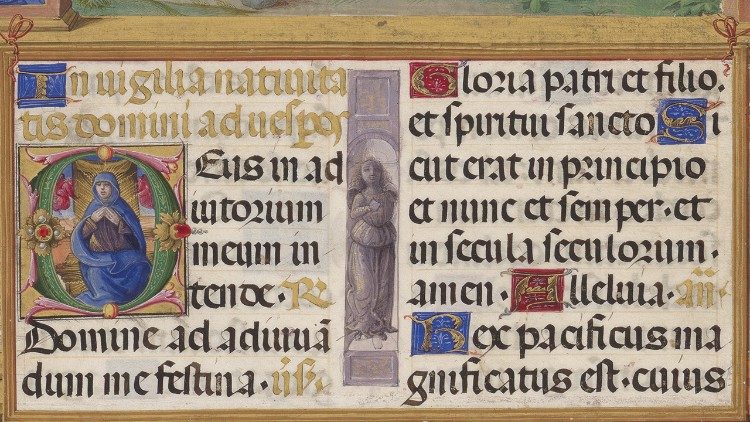 In uigilia natiuita
tis domini ad uespõr
Deus in ad
iutorium
meum in
tende · R
Domine ad adiuuã
dum me festina · ũs ·
Gloria patri et filio.
et spiritui sancto Si
cut erat in principio
et nunc et semper · et
in secula seculorum ·
amen · Alleluia · añ ·
Rex pacificus ma
gnificatus est · cuius